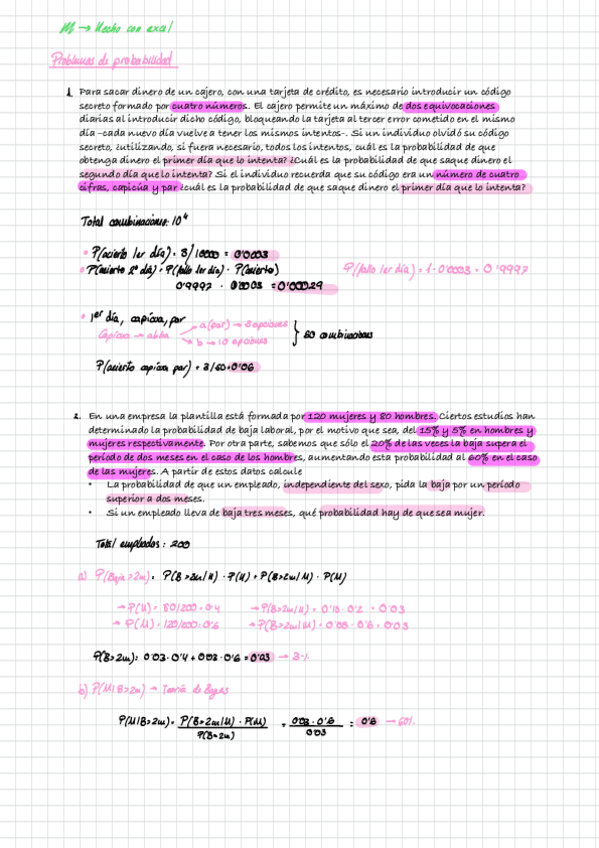 M → Hecho con excel
Problemas de probabilidad
1. Para sacar dinero de un cajero, con una tarjeta de crédito, es necesario introducir un código
secreto formado por cuatro números. El cajero permite un máximo de dos equivocaciones
diarias al introducir dicho código, bloqueando la tarjeta al tercer error cometido en el mismo
día –cada nuevo día vuelve a tener los mismos intentos-. Si un individuo olvidó su código
secreto, ¿utilizando, si fuera necesario, todos los intentos, cuál es la probabilidad de que
obtenga dinero el primer día que lo intenta? ¿Cuál es la probabilidad de que saque dinero el
segundo día que lo intenta? Si el individuo recuerda que su código era un número de cuatro
cifras, capicúa y par ¿cuál es la probabilidad de que saque dinero el primer día que lo intenta?
Total combinaciones: 10⁴
P(acierto 1er día) = 3/10000 = 0'0003
P(acierto 2º día) = P(fallo 1er día) · P(acierto) P(fallo 1er día) = 1 - 0'0003 = 0'9997
0'9997 · 0'0003 = 0'00029
1er día, capicúa, par
Capicúa → abba a(par) → 5 opciones
b → 10 opciones } 50 combinaciones
P(acierto capicúa par) = 3/50 = 0'06
2. En una empresa la plantilla está formada por 120 mujeres y 80 hombres. Ciertos estudios han
determinado la probabilidad de baja laboral, por el motivo que sea, del 15% y 5% en hombres y
mujeres respectivamente. Por otra parte, sabemos que sólo el 20% de las veces la baja supera el
período de dos meses en el caso de los hombres, aumentando esta probabilidad al 60% en el caso
de las mujeres. A partir de estos datos calcule
• La probabilidad de que un empleado, independiente del sexo, pida la baja por un período
superior a dos meses.
• Si un empleado lleva de baja tres meses, qué probabilidad hay de que sea mujer.
Total empleados: 200
a) P(Baja>2m) = P(B>2m/H) · P(H) + P(B>2m/M) · P(M)
→ P(H) = 80/200 = 0'4 → P(B>2m/H) = 0'15 · 0'2 = 0'03
→ P(M) = 120/200 = 0'6 → P(B>2m/M) = 0'05 · 0'6 = 0'03
P(B>2m) = 0'03 · 0'4 + 0'03 · 0'6 = 0'03 → 3%
b) P(M/B>2m) → Teoría de Bayes
P(M/B>2m) = P(B>2m/M) · P(M) / P(B>2m) = 0'03 · 0'6 / 0'03 = 0'6 → 60%